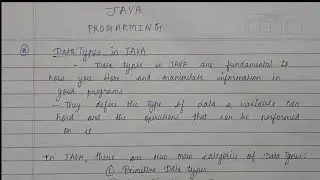 JAVA
PROGARMING
Data Types in JAVA
- Data types in JAVA are fundamental to
how you store and manipulate information in
your programs
- They define the type of data a variable can
hold and the operations that can be performed
on it
In JAVA, there are two main categories of Data Types:
① Primitive Data types